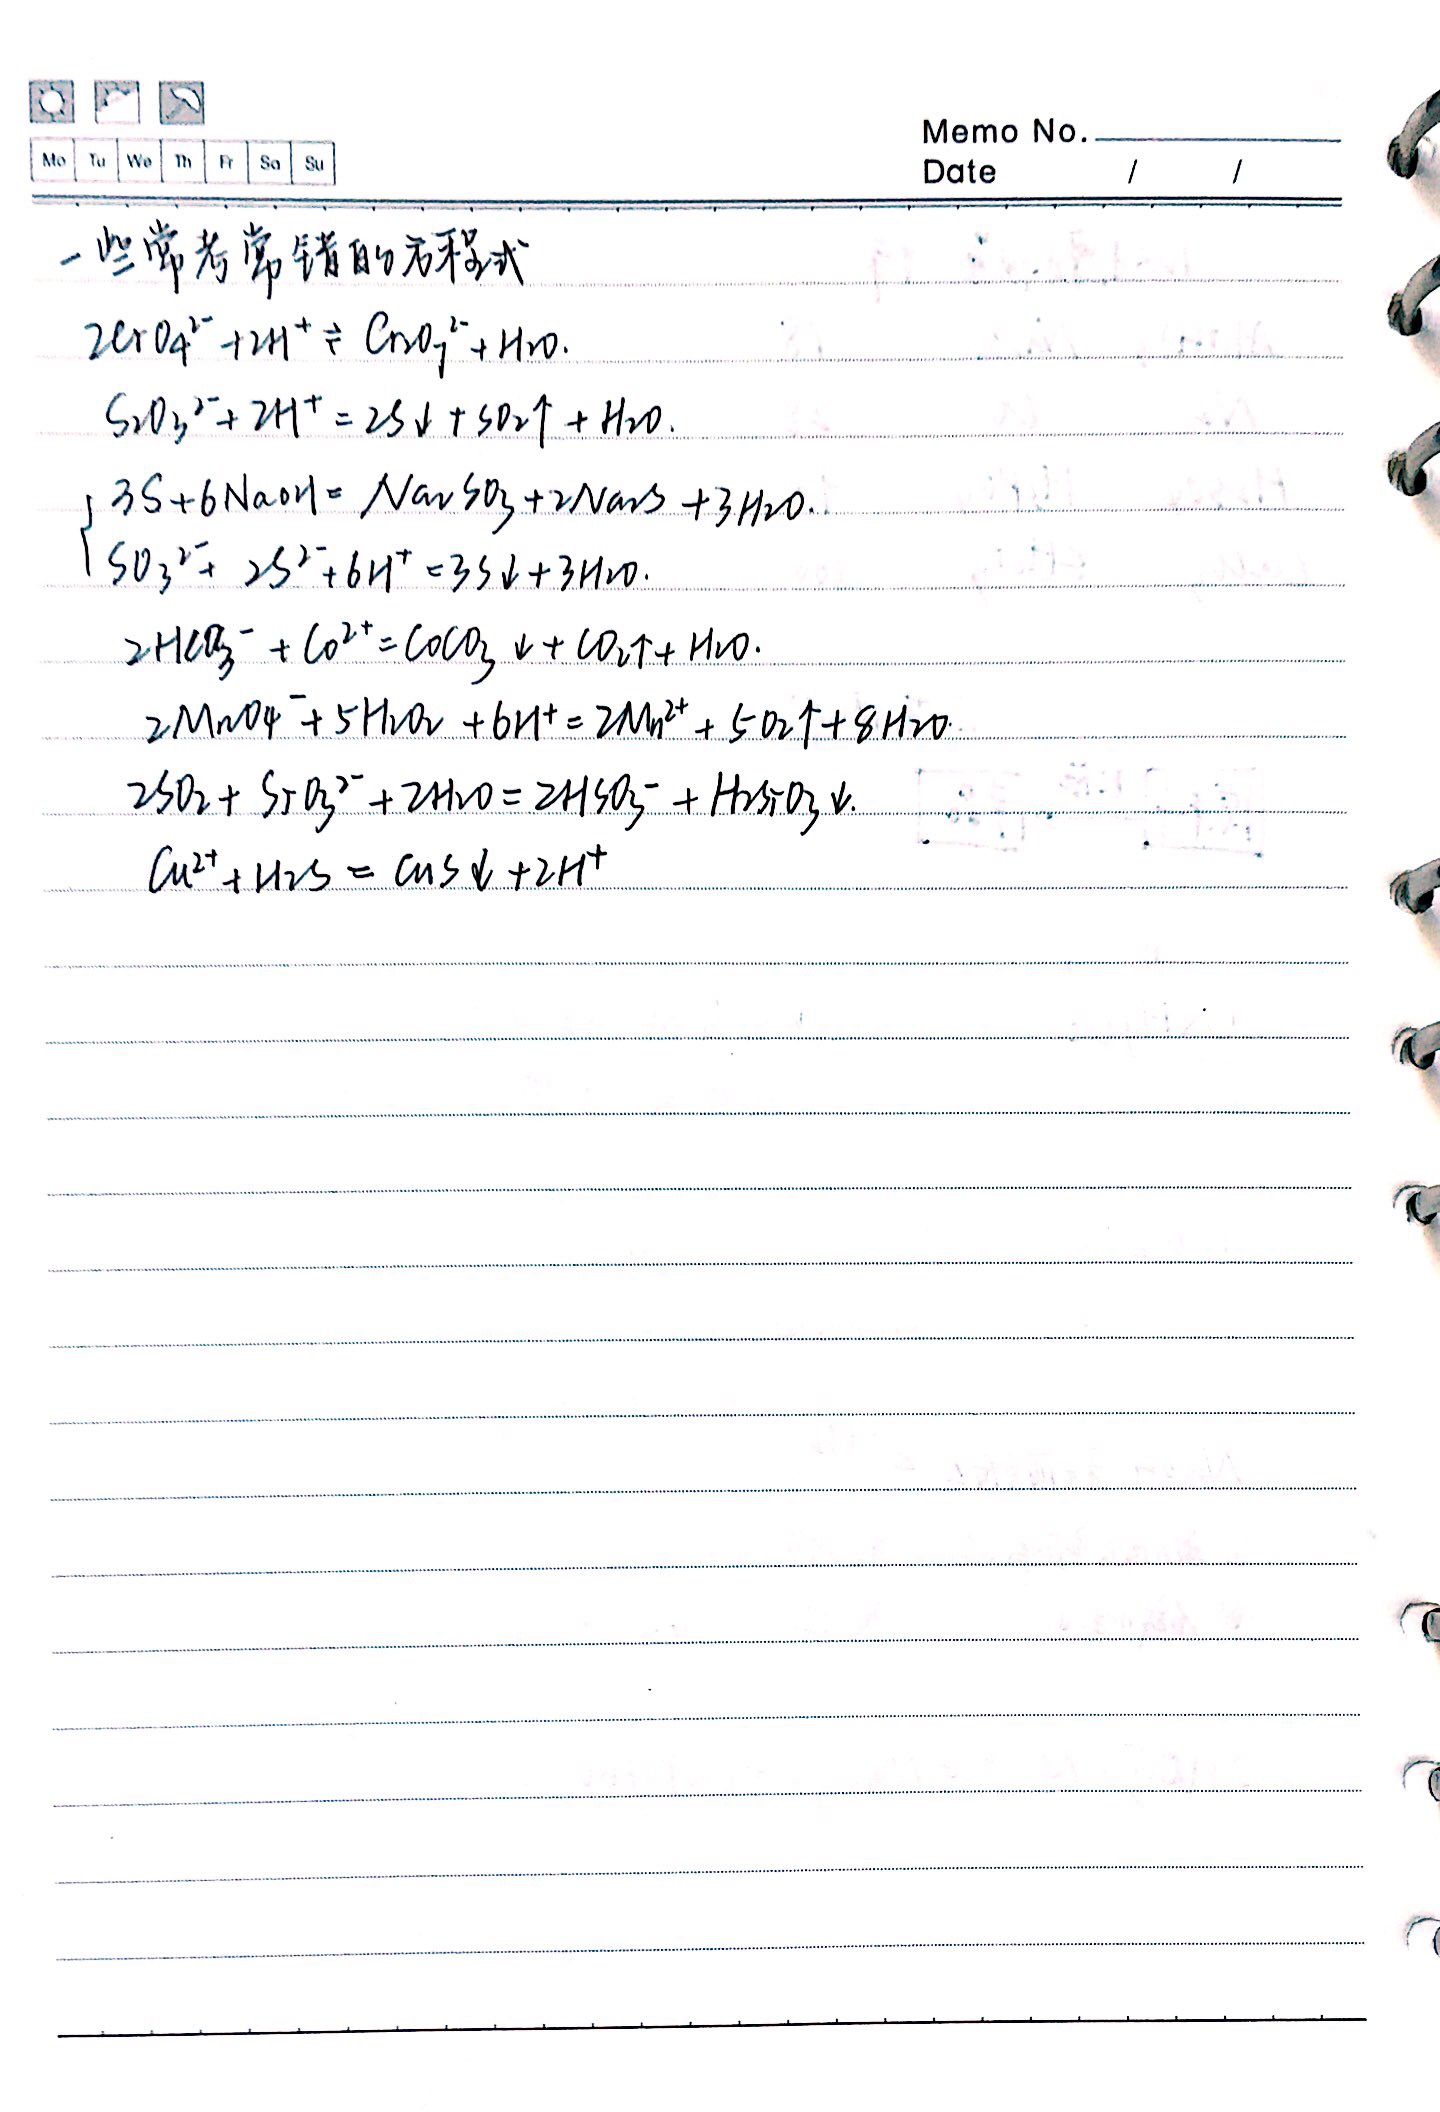 Memo No.
Mo Tu We Th Fr Sa Su
Date / /
一些常考常错的方程式
2CrO₄²⁻+2H⁺⇌Cr₂O₇²⁻+H₂O.
S₂O₃²⁻+2H⁺=2S↓+SO₂↑+H₂O.
3S+6NaOH=Na₂SO₃+2Na₂S+3H₂O.
SO₃²⁻+2S²⁻+6H⁺=3S↓+3H₂O.
2HCO₃⁻+Co²⁺=CoCO₃↓+CO₂↑+H₂O.
2MnO₄⁻+5H₂O₂+6H⁺=2Mn²⁺+5O₂↑+8H₂O.
2SO₂+SiO₃²⁻+2H₂O=2HSO₃⁻+H₂SiO₃↓.
Cu²⁺+H₂S=CuS↓+2H⁺